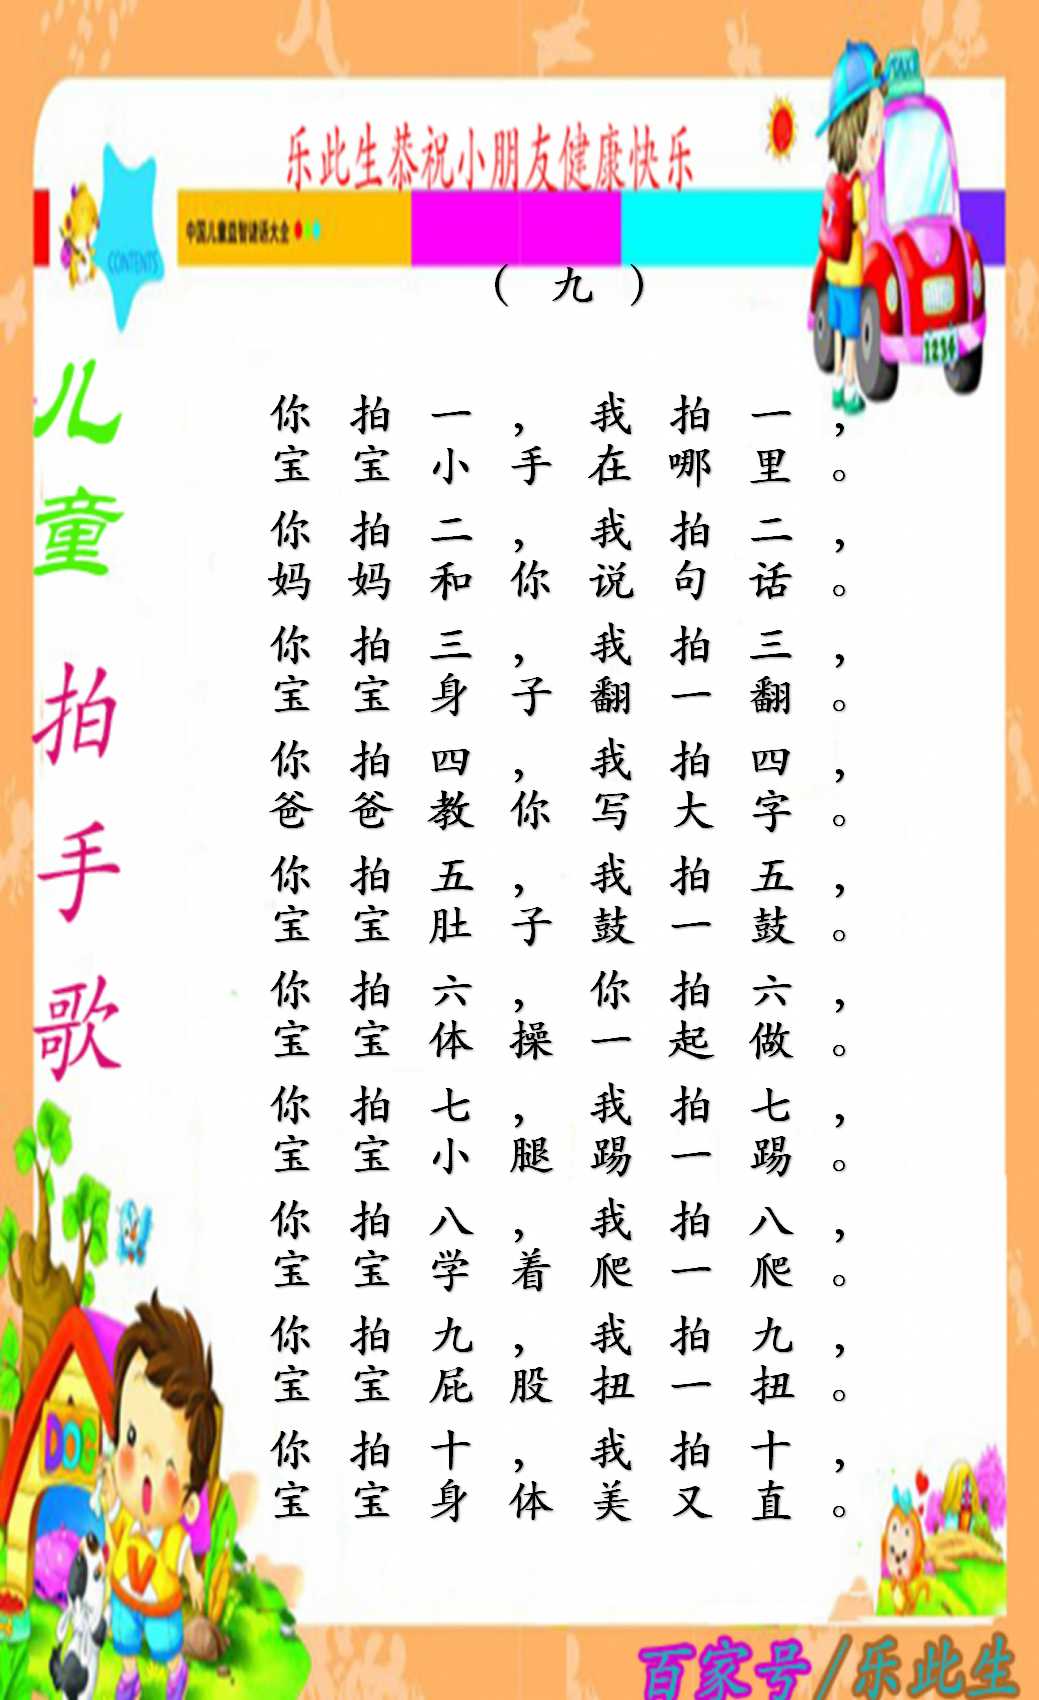 乐此生恭祝小朋友健康快乐
TAXI
中国儿童益智谜语大全
CONTENTS
1234
（九）
儿童拍手歌
你拍一，我拍一，
宝宝小手在哪里。
你拍二，我拍二，
妈妈和你说句话。
你拍三，我拍三，
宝宝身子翻一翻。
你拍四，我拍四，
爸爸教你写大字。
你拍五，我拍五，
宝宝肚子鼓一鼓。
你拍六，你拍六，
宝宝体操一起做。
你拍七，我拍七，
宝宝小腿踢一踢。
你拍八，我拍八，
宝宝学着爬一爬。
你拍九，我拍九，
宝宝屁股扭一扭。
你拍十，我拍十，
宝宝身体美又直。
DOG
V
百家号/乐此生